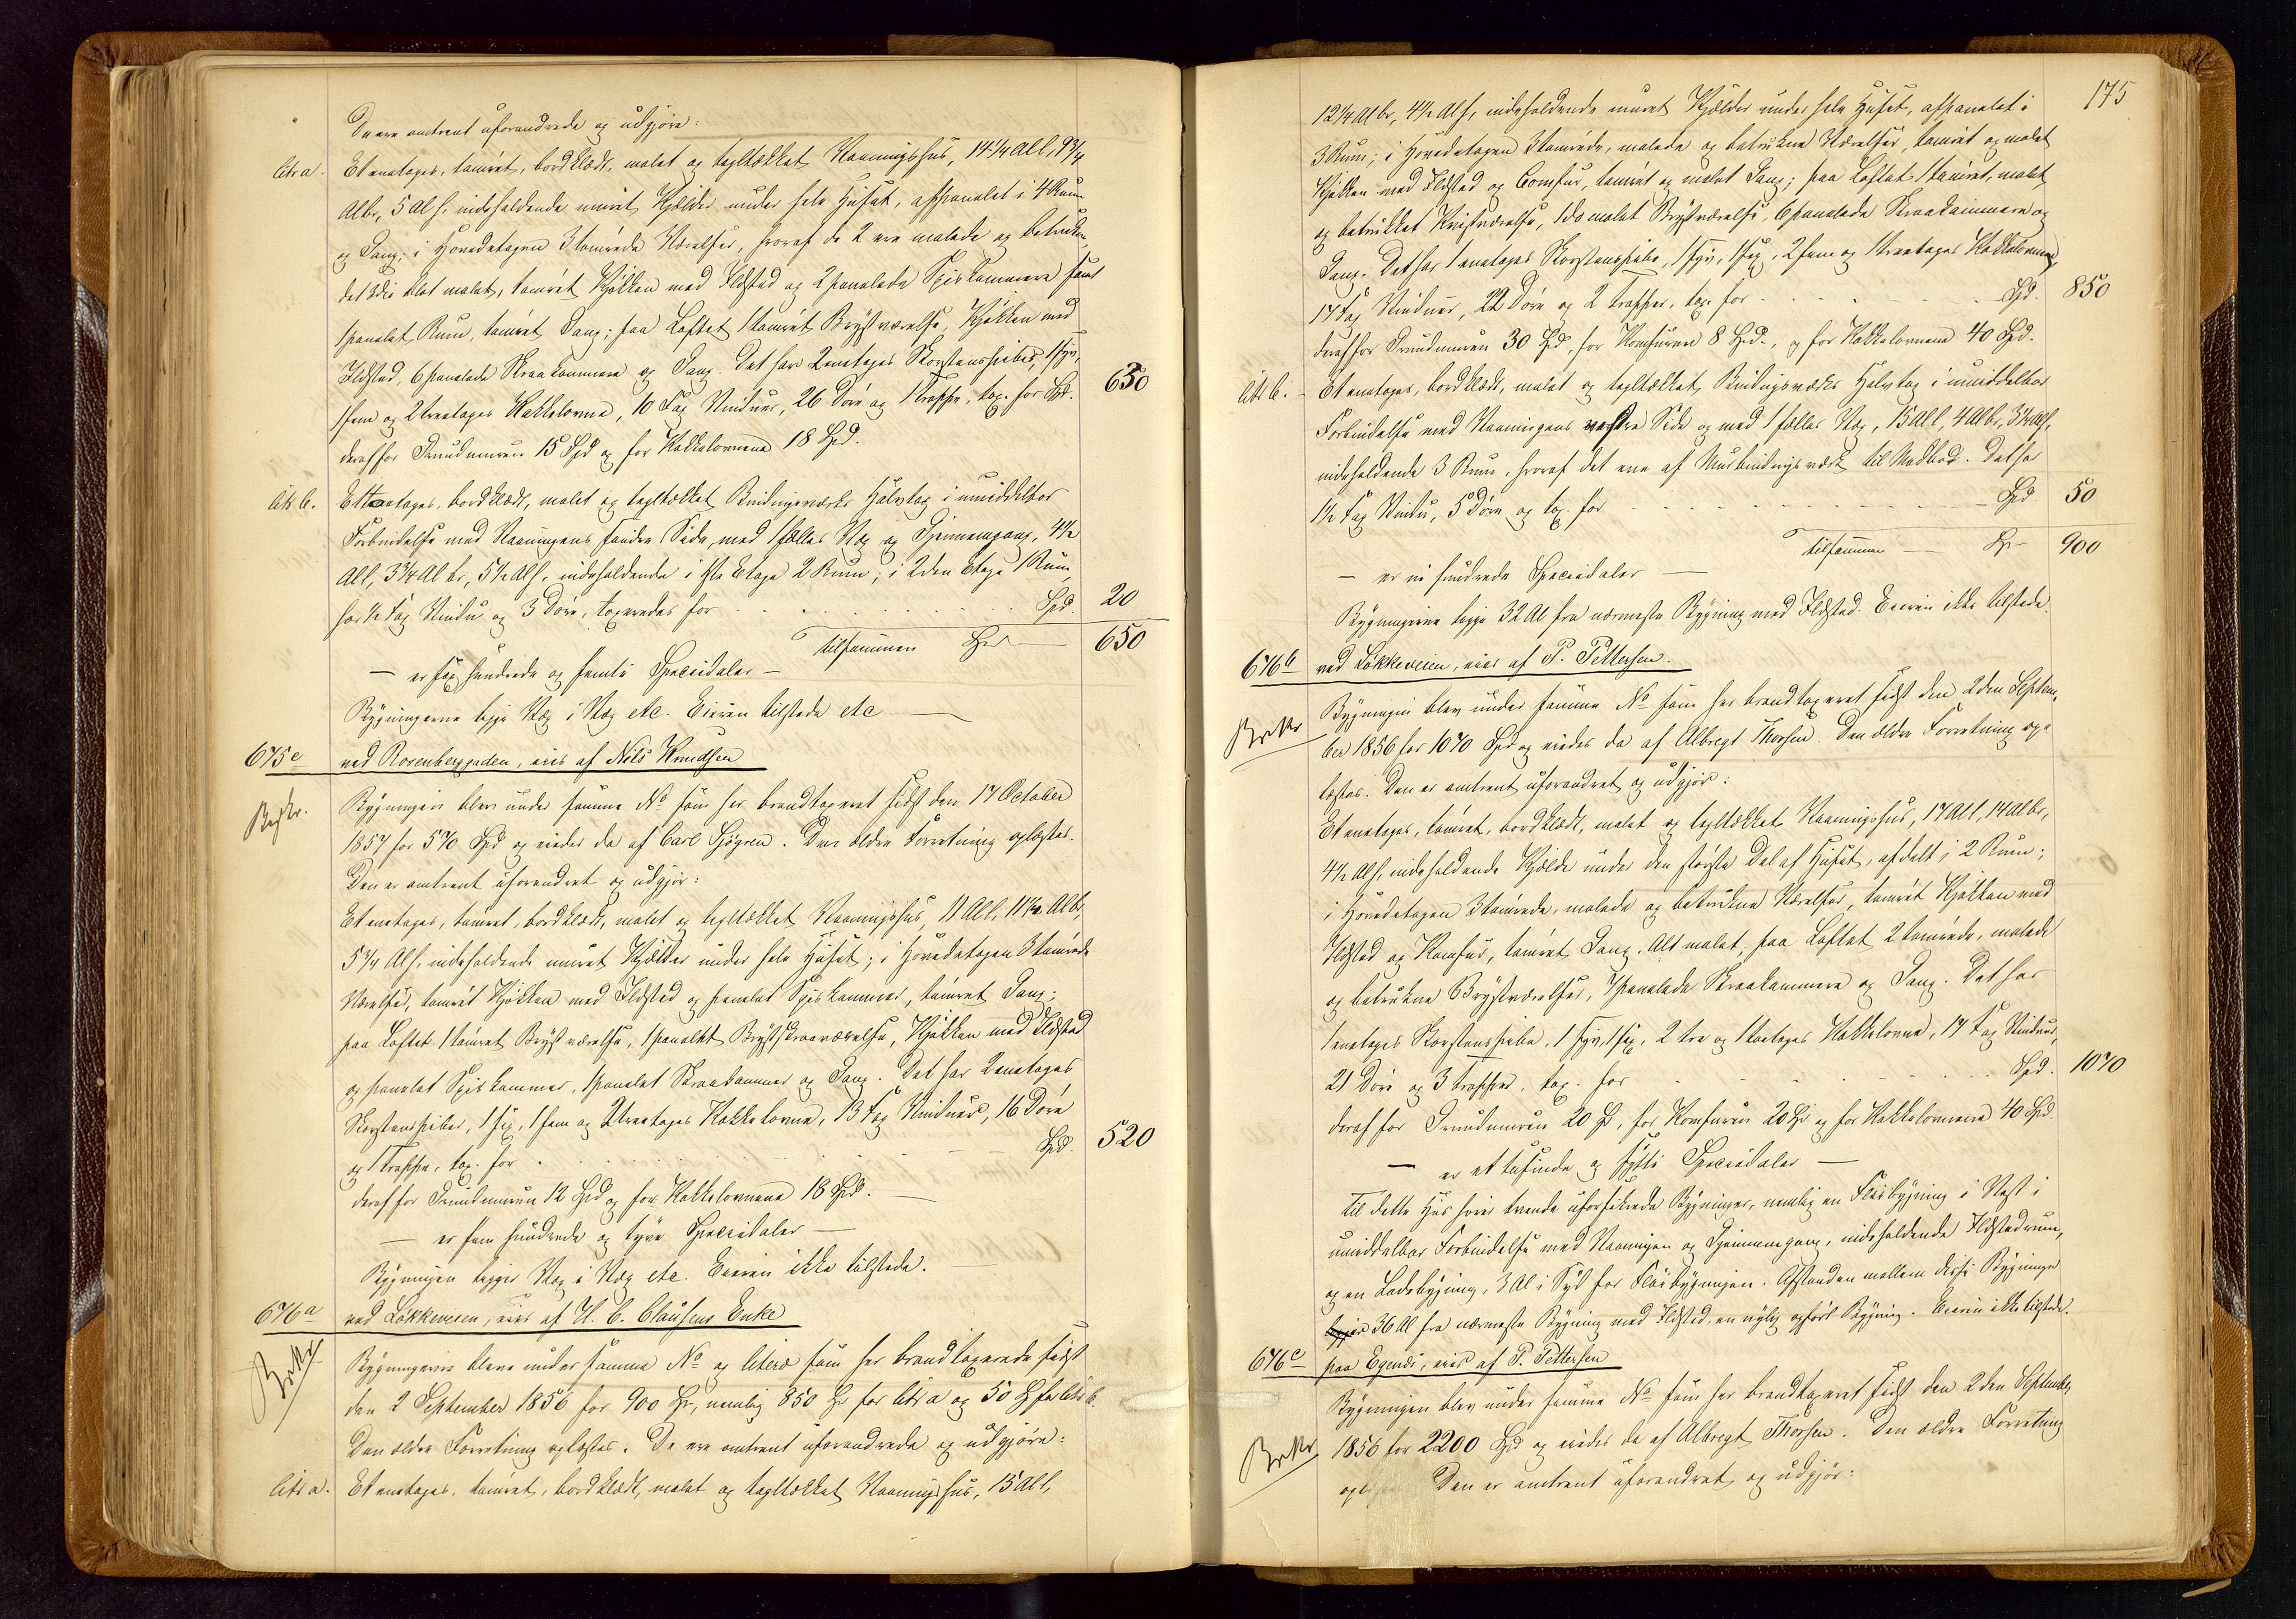 De ere omtrent uforandrede og udgjøre:
litr a. Et enetages, tømret, bordklædt, malet og tegltækket Vaaningshus, 14¼ Al l, 9¾
Al br, 5 Al h, indeholdende muret Kjelder under hele Huset, afpanelet i 4 Rum
og Gang; i Hovedetagen 3 tømrede Værelser, hvoraf de 2 ere malede og betrukne,
det 3die blot malet, tømret Kjøkken med Ildsted og 2 panelede Spiskammere samt
1 panelet Rum, tømret Gang; paa Loftet 1 tømret Brystværelse, Kjøkken med
Ildsted, 6 panelede Skraakammere og Gang. Det har 2 enetages Skorstenspiber, 1 syv,
1 fem og 2 treetages Kakkelovne, 10 Fag Vinduer, 26 Døre og 1 Trappe, tax. for Spd. 630
deraf for Grundmuren 15 Spd og for Kakkelovnene 18 Spd.
litr b. Et toetages, bordklædt, malet og tegltækket Bindingsværks Halvtag i umiddelbar
Forbindelse med Vaaningens søndre Side, med 1 fælles Væg og Gjennemgang, 4½
Al l, 3¾ Al br, 5½ Al h, indeholdende i 1ste Etage 2 Rum; i 2den Etage 1 Rum,
har ½ Fag Vindu og 3 Døre, taxeredes for Spd. 20
tilsammen Spd 650
— er sex hundrede og femti Speciedaler —
Bygningerne ligge Væg i Væg etc. Eieren tilstede etc
675c ved Rosenberggaden, eies af Nils Knudsen
Beskr. Bygningen blev under samme No som her brandtaxeret sidst den 17 October
1857 for 570 Spd og eiedes da af Carl Sjögren. Den ældre Forretning oplæstes.
Den er omtrent uforandret og udgjør:
Et enetages, tømret, bordklædt, malet og tegltækket Vaaningshus, 11 Al l, 11½ Al br,
5¾ Al h, indeholdende muret Kjelder under hele Huset; i Hovedetagen 3 tømrede
Værelser, tømret Kjøkken med Ildsted og panelet Spiskammer, tømret Gang;
paa Loftet 1 tømret Brystværelse, 1 panelet Brystskraaværelse, Kjøkken med Ildsted
og panelet Spiskammer, 1 panelet Skraakammer og Gang. Det har 2 enetages
Skorstenspiber, 1 sex, 1 fem og 2 treetages Kakkelovne, 13 Fag Vinduer, 16 Døre
og 1 Trappe, tax. for Spd. 520
deraf for Grundmuren 12 Spd og for Kakkelovnene 18 Spd.
— er fem hundrede og tyve Speciedaler —
Bygningen ligger Væg i Væg etc. Eieren ikke tilstede.
676a ved Løkkeveien, eies af H. C. Clausens Enke
Bygningerne bleve under samme No og litera som her brandtaxerede sidst
den 2 September 1856 for 900 Spd, nemlig 850 Spd for litr a og 50 Spd for litr b.
Den ældre Forretning oplæstes. De ere omtrent uforandrede og udgjøre:
litr a. Et enetages, tømret, bordklædt, malet og tegltækket Vaaningshus, 15 Al l,
175
12¼ Al br, 4½ Al h, indeholdende muret Kjelder under hele Huset, afpanelet i
3 Rum; i Hovedetagen 3 tømrede, malede og betrukne Værelser, tømret og malet
Kjøkken med Ildsted og Comfur, tømret og malet Gang; paa Loftet 1 tømret, malet
og betrukket Kvistværelse, 1 do malet Brystværelse, 6 panelede Skraakammere og
Gang. Det har 1 enetages Skorstenspibe, 1 syv, 1 sex, 2 fem og 1 treetages Kakkelovne,
17 Fag Vinduer, 22 Døre og 2 Trapper, tax. for Spd. 850
deraf for Grundmuren 30 Spd, for Komfuren 8 Spd., og for Kakkelovnene 40 Spd.
litr b. Et enetages, bordklædt, malet og tegltækket Bindingsværks Halvtag i umiddelbar
Forbindelse med Vaaningens vestre Side og med 1 fælles Væg, 15 Al l, 4 Al br, 3¼ Al h,
indeholdende 3 Rum, hvoraf det ene af Murbindingsværk til Madbod. Det har
1½ Fag Vindu, 5 Døre og tax. for Spd. 50
tilsammen Spd 900
— er ni hundrede Speciedaler —
Bygningerne ligge 32 Al fra nærmeste Bygning med Ildsted. Eieren ikke tilstede.
676b ved Løkkeveien, eies af P. Pettersen.
Bygningen blev under samme No som her brandtaxeret sidst den 2den Septem-
ber 1856 for 1070 Spd og eiedes da af Albregt Thorsen. Den ældre Forretning op-
læstes. Den er omtrent uforandret og udgjør:
Et enetages, tømret, bordklædt, malet og tegltækket Vaaningshus, 17 Al l, 14 Al br,
4½ Al h, indeholdende Kjelder under den største Del af Huset, afdelt i 2 Rum;
i Hovedetagen 3 tømrede, malede og betrukne Værelser, tømret Kjøkken med
Ildsted og Komfur, tømret Gang. Alt malet; paa Loftet 2 tømrede, malede
og betrukne Brystværelser, 7 panelede Skraakammere og Gang. Det har
1 enetages Skorstenspibe, 1 syv, 1 sex, 2 tre og 1 toetages Kakkelovne, 17 Fag Vinduer,
21 Døre og 3 Trapper, tax. for Spd. 1070
deraf for Grundmuren 20 Spd, for Komfuren 20 Spd og for Kakkelovnene 40 Spd.
— er et tusinde og sytti Speciedaler —
Til dette Hus høre tvende uforsikrede Bygninger, nemlig en Fløibygning i Vest i
umiddelbar Forbindelse med Vaaningen og Gjennemgang, indeholdende Ildstedrum,
og en Ladebygning, 3 Al i Syd for Fløibygningen. Afstanden mellem disse Bygninger
er 36 Al fra nærmeste Bygning med Ildsted, en nylig opført Bygning. Eieren ikke tilstede.
676c paa Egenæs, eies af P. Pettersen
Bygningen blev under samme No som her brandtaxeret sidst den 2den September
1856 for 2200 Spd og eiedes da af Albregt Thorsen. Den ældre Forretning
Den er omtrent uforandret og udgjør: